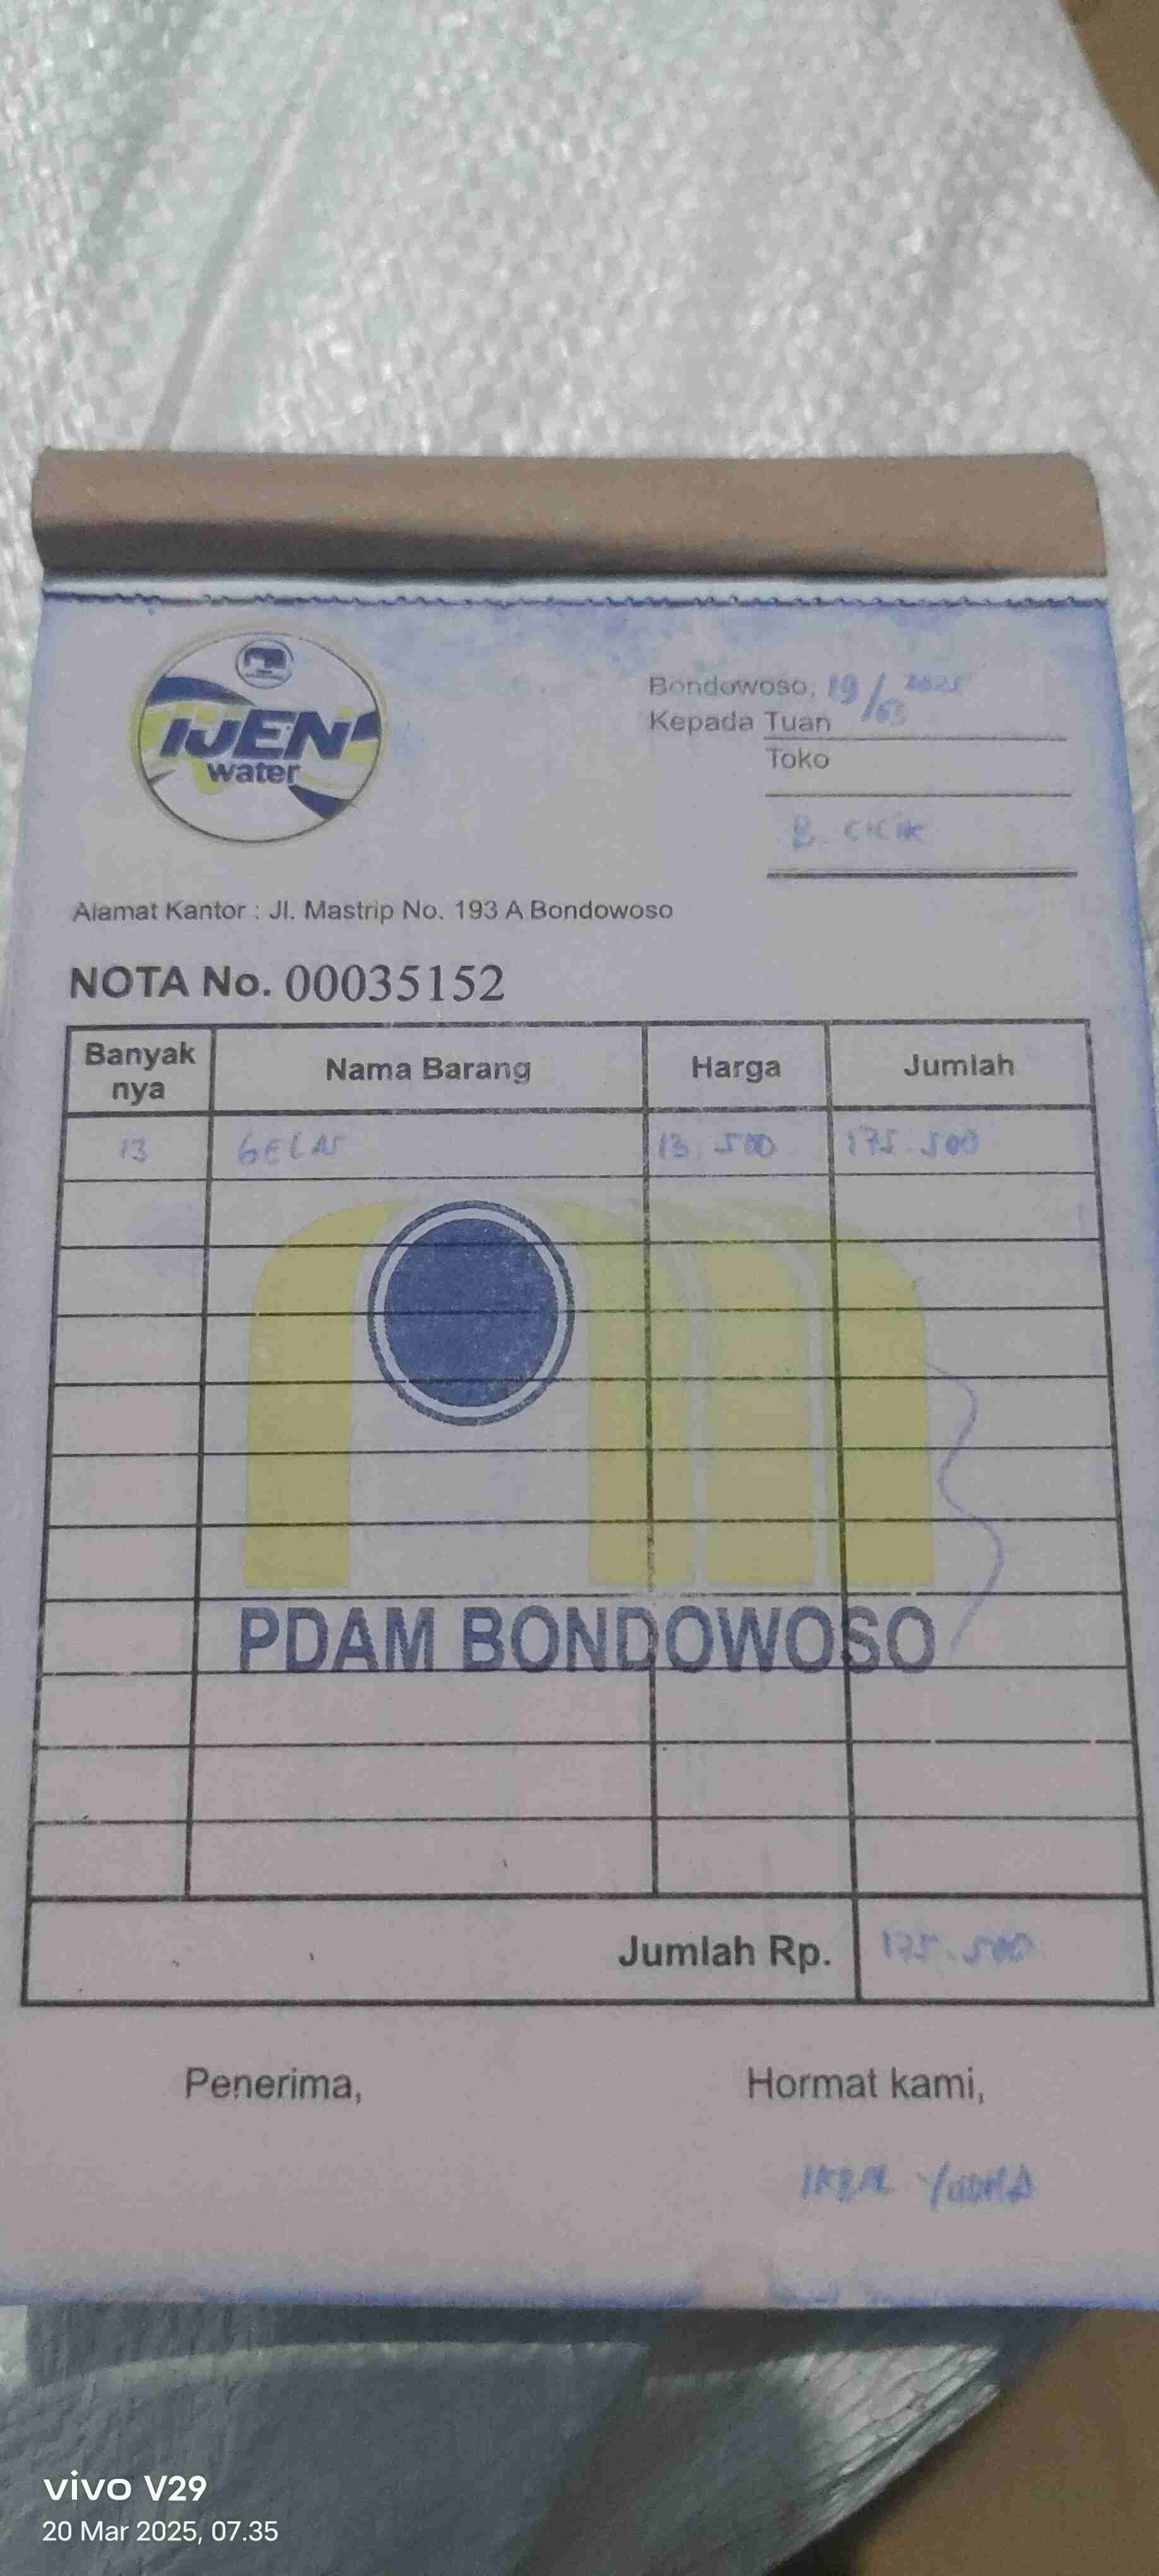 IJEN
water
Bondowoso, 19/03 2025
Kepada Tuan
Toko
B. CICIK
Alamat Kantor : Jl. Mastrip No. 193 A Bondowoso
NOTA No. 00035152
Banyak nya Nama Barang Harga Jumlah
13 GELAS 13.500 175.500
PDAM BONDOWOSO
Jumlah Rp. 175.500
Penerima, Hormat kami,
YUDHA
vivo V29
20 Mar 2025, 07.35